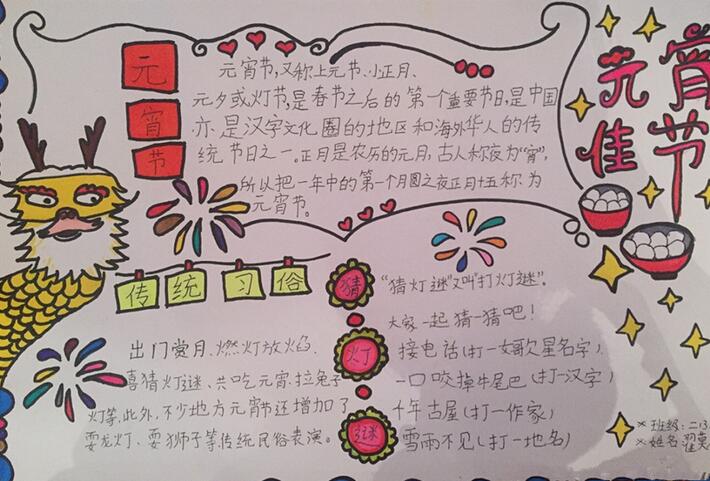 元宵节
元宵节,又称上元节、小正月、
元夕或灯节,是春节之后的第一个重要节日,是中国
亦是汉字文化圈的地区和海外华人的传
统节日之一。正月是农历的元月,古人称夜为“宵”,
所以把一年中的第一个月圆之夜正月十五称为
元宵节。
元宵
佳节
传统习俗
出门赏月、燃灯放焰、
喜猜灯谜、共吃元宵、拉兔子
灯等。此外,不少地方元宵节还增加了
耍龙灯、耍狮子等传统民俗表演。
猜灯谜
“猜灯谜”又叫“打灯谜”。
大家一起猜一猜吧!
接电话(打一女歌星名字)
一口咬掉牛尾巴(打一汉字)
千年古屋(打一作家)
雪雨不见(打一地名)
班级:二
姓名